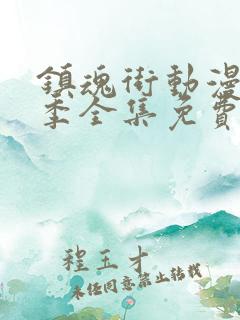 鎮魂街動漫
季全集免費
程玉才
未经同意禁止转载